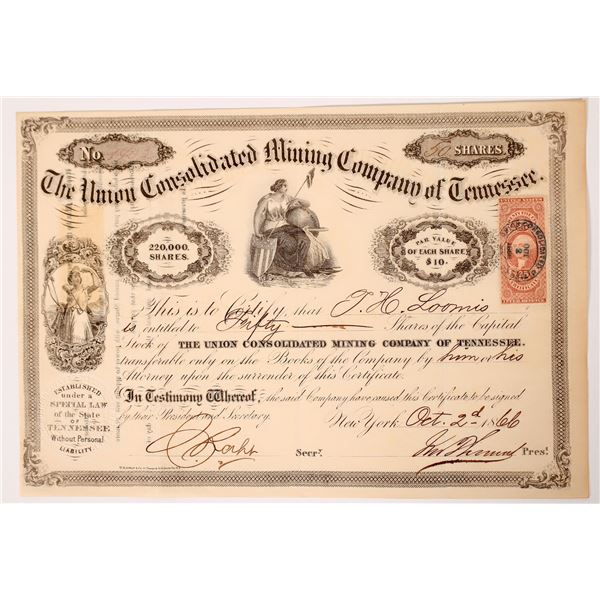 No.
50 SHARES.
The Union Consolidated Mining Company of Tennessee.
220,000.
SHARES.
PAR VALUE
OF EACH SHARE
$10.
UNITED STATES
This is to Certify, that T. H. Loomis
is entitled to Fifty Shares of the Capital
Stock of THE UNION CONSOLIDATED MINING COMPANY OF TENNESSEE.
transferable only on the Books of the Company by him or his
Attorney upon the surrender of this Certificate.
In Testimony Whereof, the said Company have caused this Certificate to be signed
by their President and Secretary.
New York Oct. 2d 1866
Secry.
Prest.
ESTABLISHED
under a
SPECIAL LAW
of the State
of
TENNESSEE
Without Personal
LIABILITY.